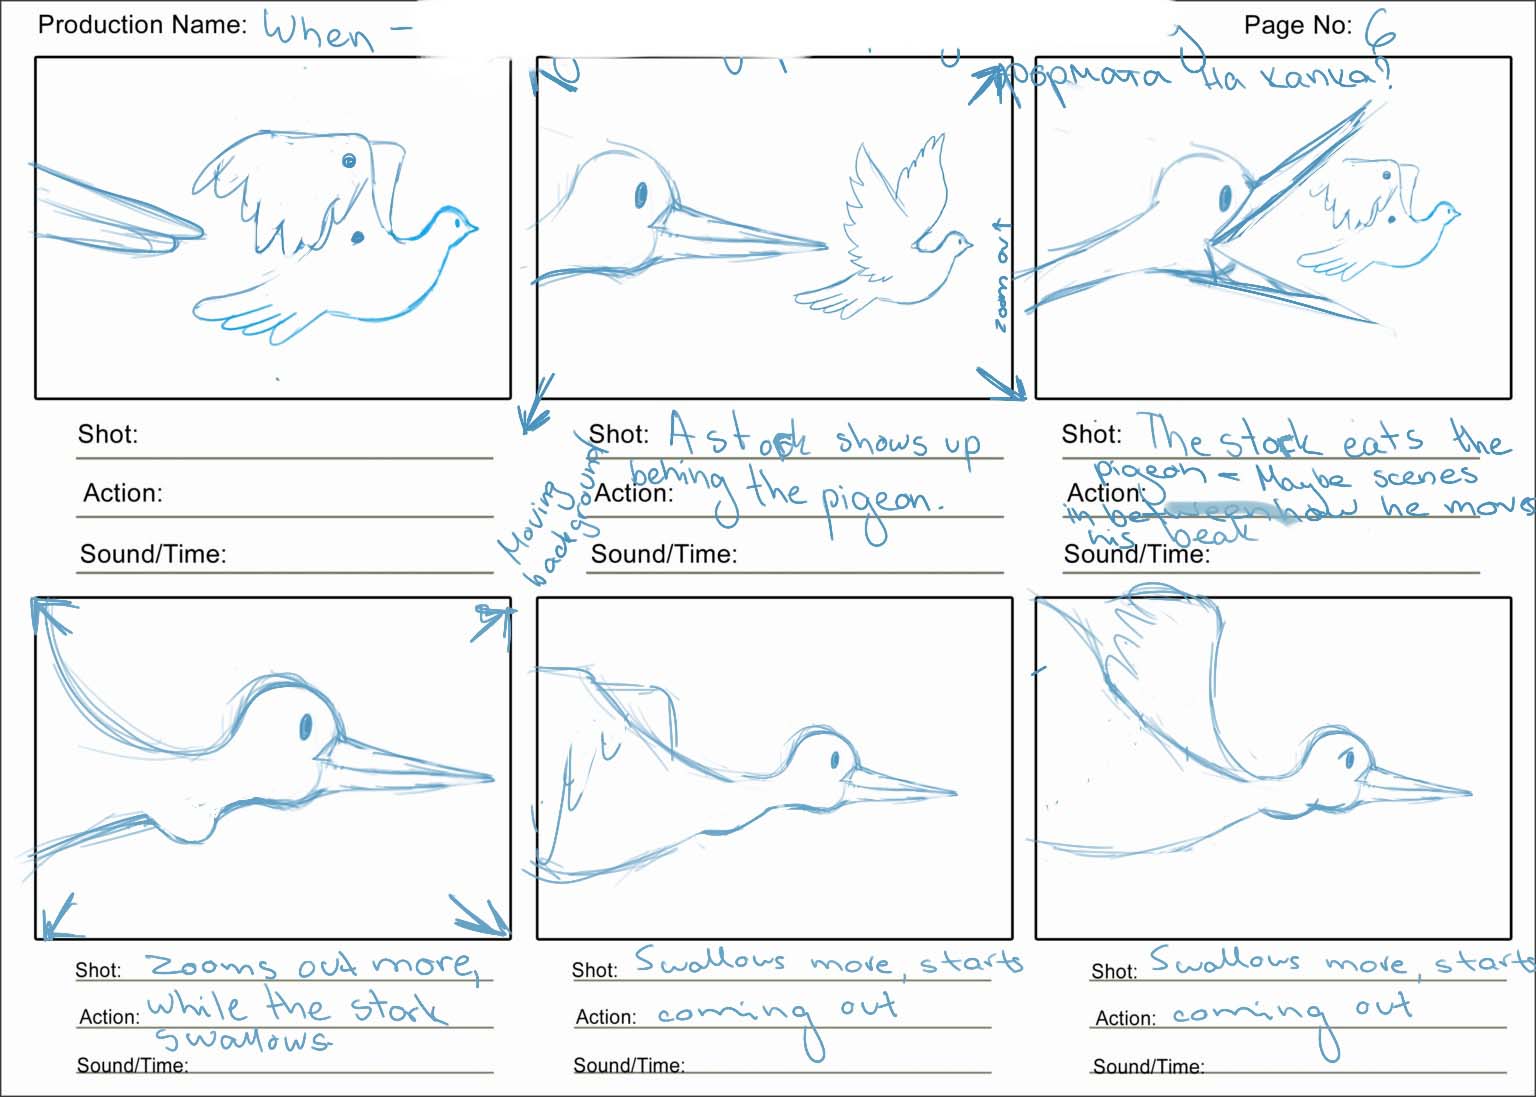 Production Name: When -
Page No: 6
формата на капка?
zoom out
Shot:
Action:
Sound/Time:
Moving
background
Shot: A stork shows up
behing the pigeon.
Action:
Sound/Time:
Shot: The stork eats the
pigeon - Maybe scenes
Action:
in between how he moves
his beak
Sound/Time:
Shot: Zooms out more,
Action: while the stork
swallows
Sound/Time:
Shot: Swallows more, starts
Action: coming out
Sound/Time:
Shot: Swallows more, starts
Action: coming out
Sound/Time: